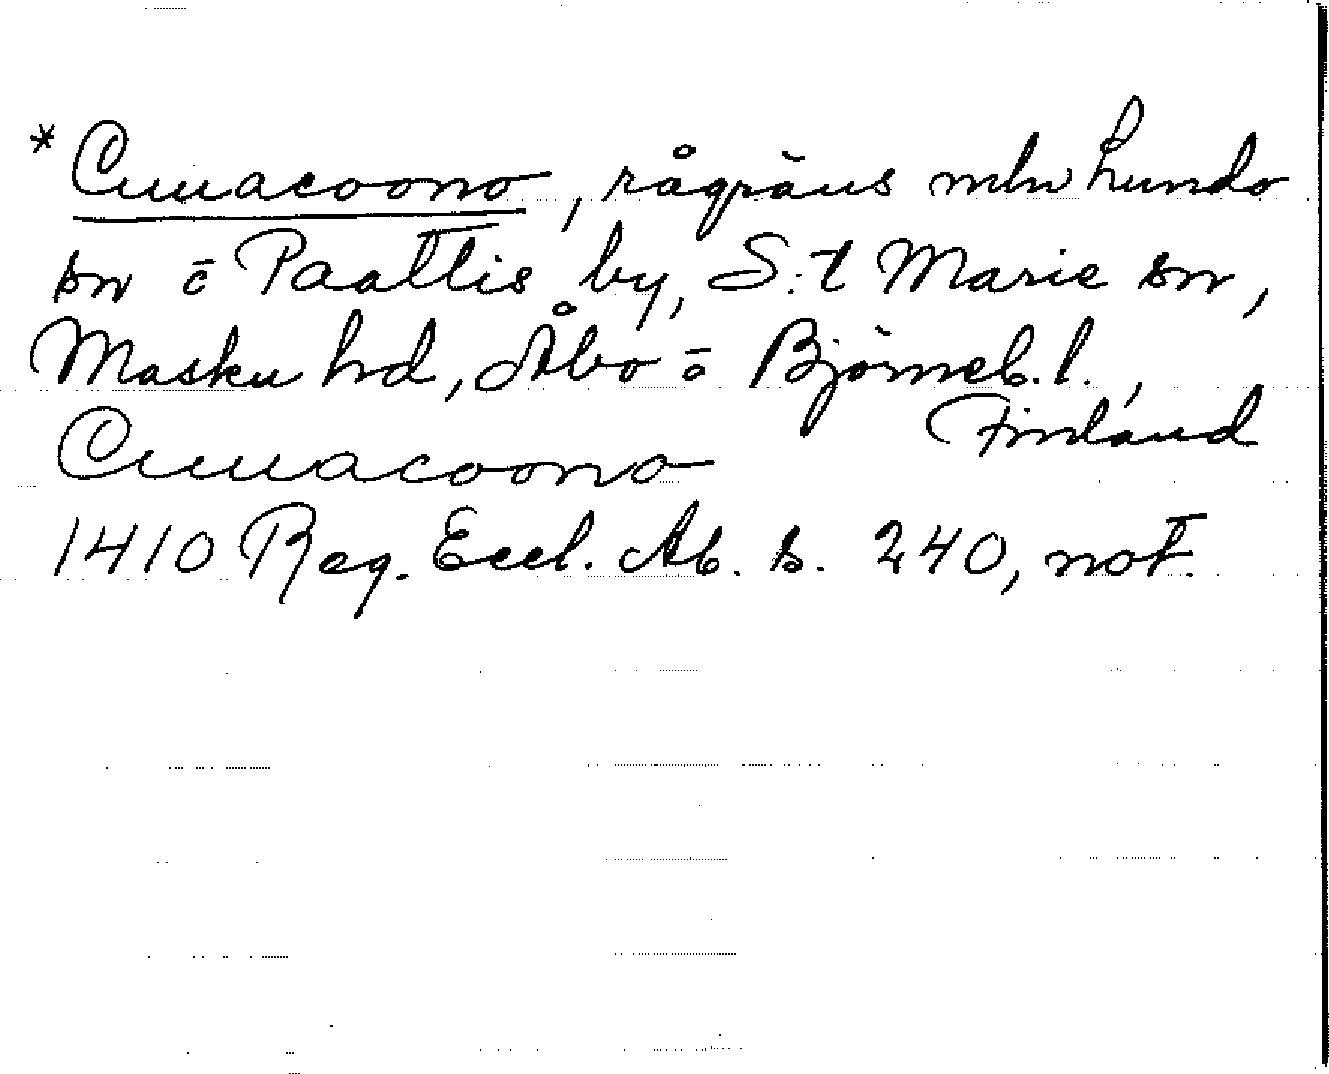 * Cuuacoono, rågräns mln Lundo
sn o Paattis by, S:t Marie sn,
Masku hd, Åbo o Björneb. l.,
Finland
Cuuacoono
1410 Reg. Eccl. Ab. s. 240, not.